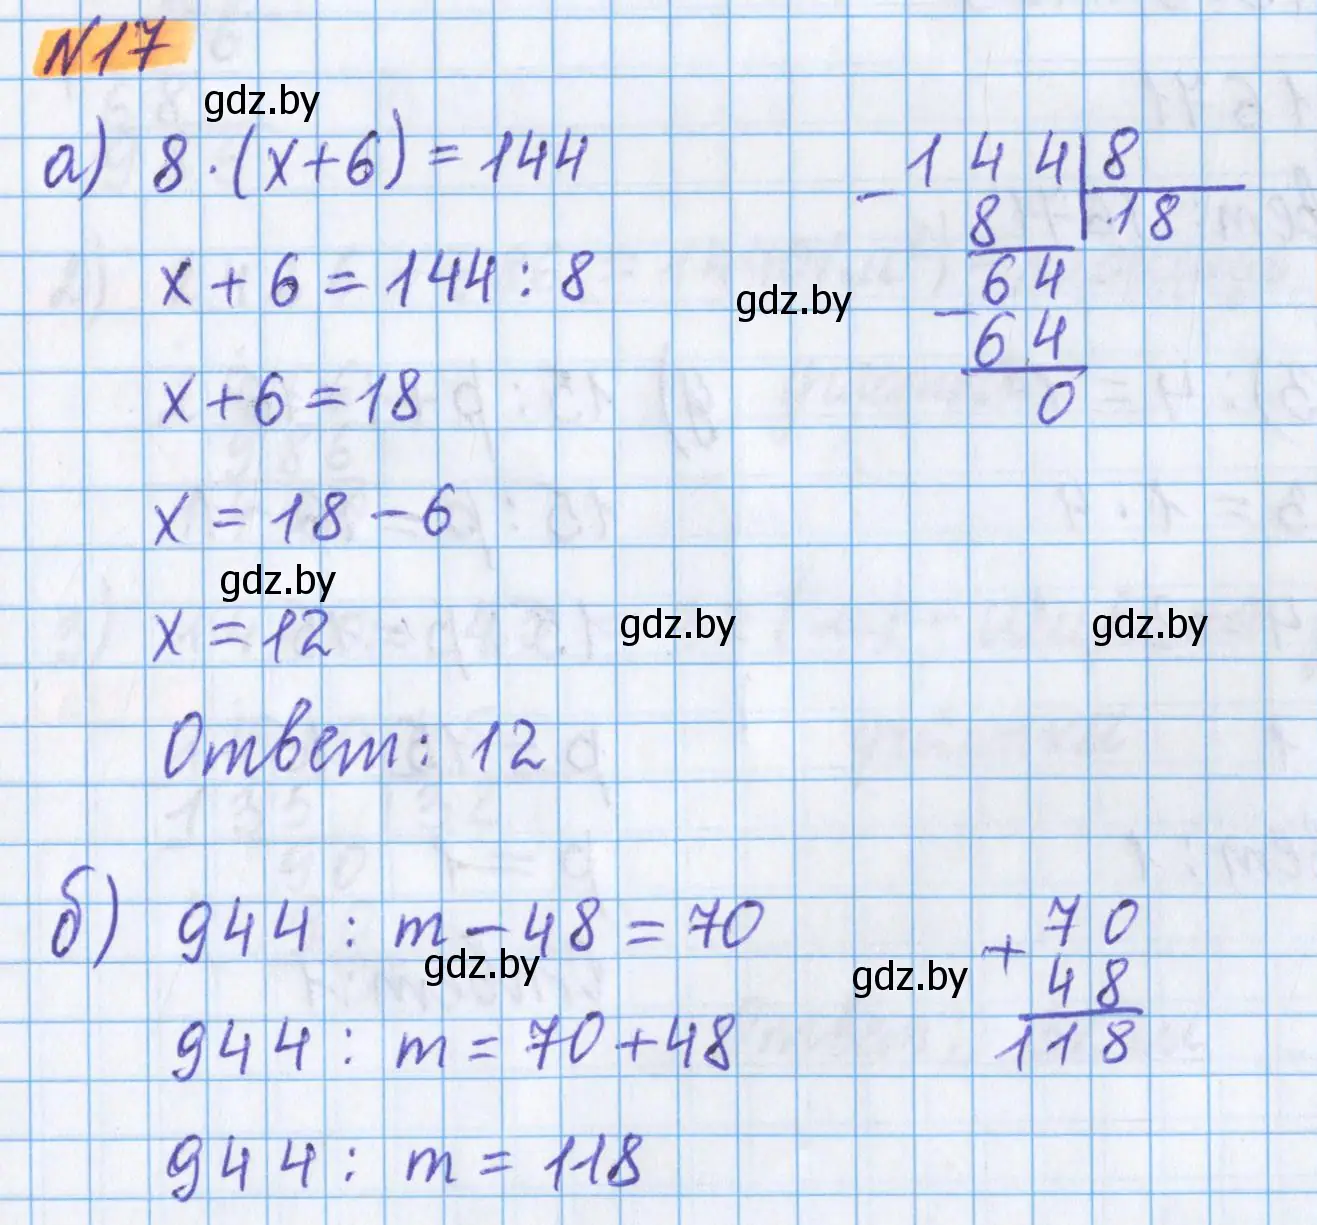 №17
gdz.by
а) 8 · (x+6) = 144
x + 6 = 144 : 8
x + 6 = 18
x = 18 - 6
gdz.by
x = 12
Ответ: 12
- 144 | 8
8 | 18
64
- 64
0
gdz.by
gdz.by
gdz.by
б) 944 : m - 48 = 70
gdz.by
944 : m = 70 + 48
944 : m = 118
gdz.by
+ 70
48
118